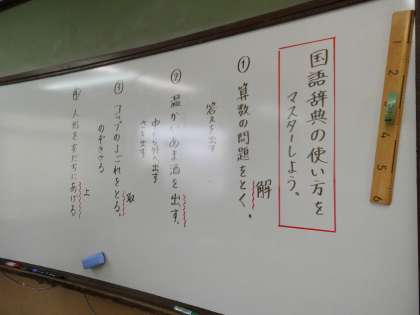 国語辞典の使い方を
マスターしよう。
① 算数の問題をとく。
解
答えを出す
② 温かいあま酒を出す。
中から外へ出す
さし出す
③ コップのよごれをとる。
取
のぞきさる
④ 人形を友だちにあげる。
上
1 2 4 5 6